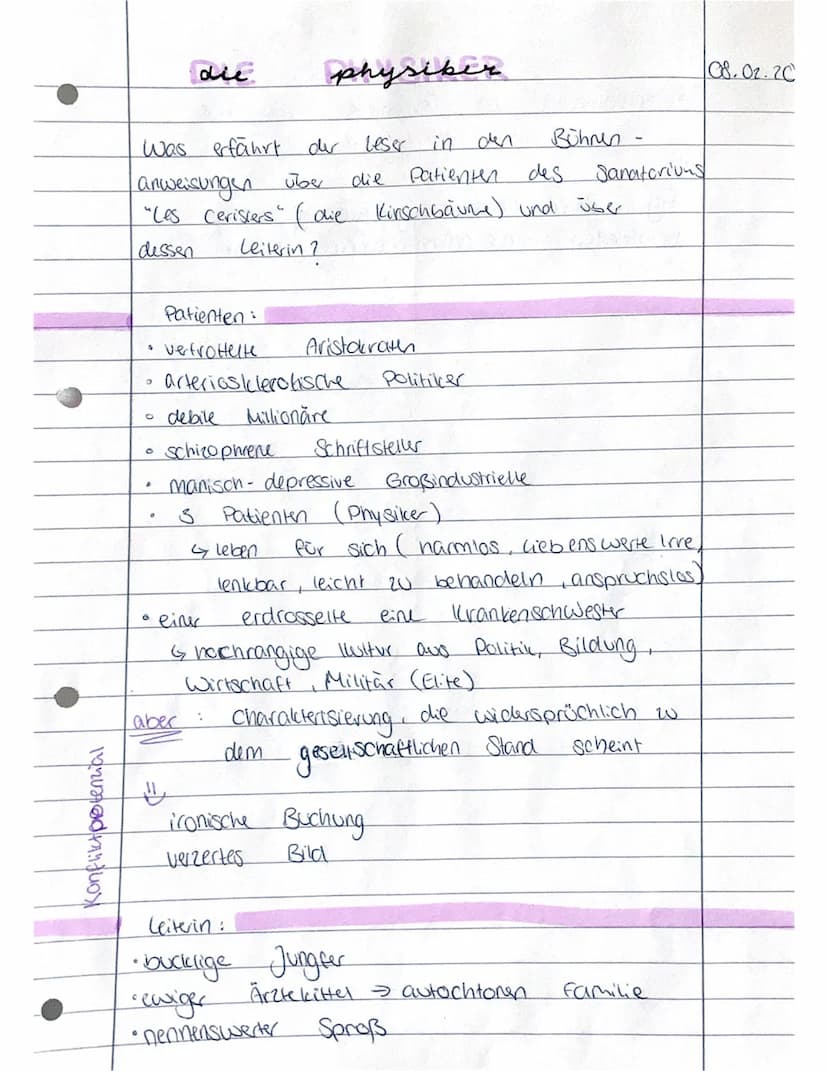 die physiker 08.02.20
Was erfährt der Leser in den Bühnen-
anweisungen über die Patienten des Sanatoriums
"Les Cerisiers" (die Kirschbäume) und über
dessen Leiterin?
Patienten:
• vertrottelte Aristokraten
• arteriosklerotische Politiker
• debile Millionäre
• schizophrene Schriftsteller
• manisch-depressive Großindustrielle
• 3 Patienten (Physiker)
↳ leben für sich (harmlos, liebenswerte Irre,
lenkbar, leicht zu behandeln, anspruchslos)
• einer erdrosselte eine Krankenschwester
↳ hochrangige Kultur aus Politik, Bildung,
Wirtschaft, Militär (Elite)
aber: Charaktertsierung, die widersprüchlich zu
dem gesellschaftlichen Stand scheint
Konfliktpotenzial
ironische Buchung
verzertes Bild
Leiterin:
• bucklige Jungfer
• ewiger Ärztekittel → autochtonen Familie
• nennenswerter Sproß